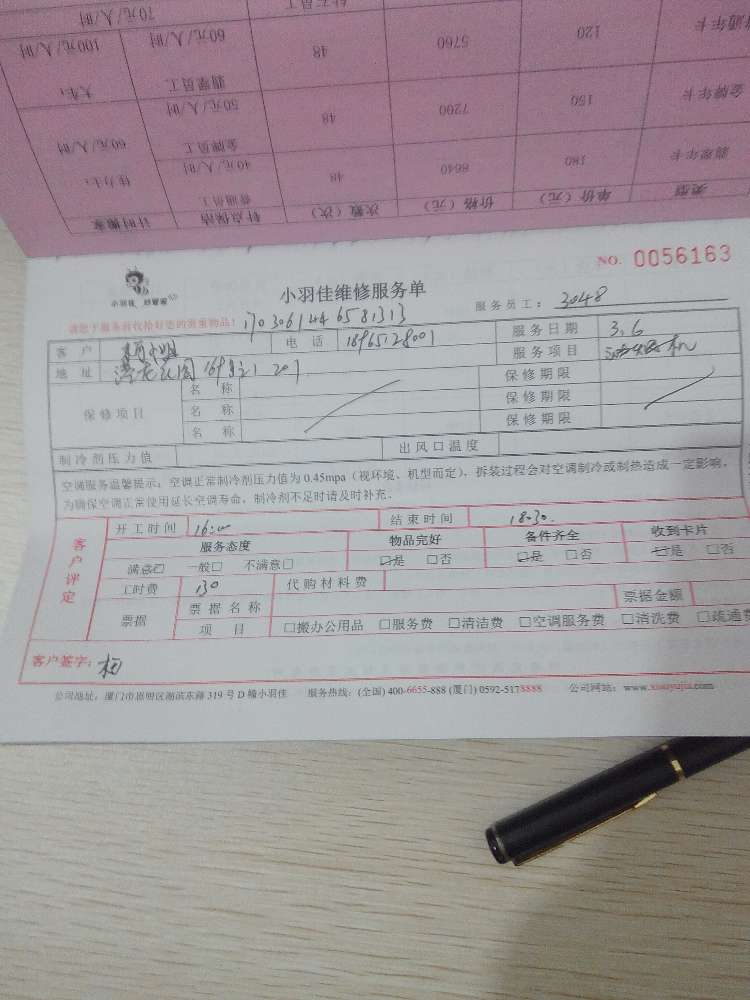 70元/人/时 钻石员工
100元/人/时 60元/人/时 48 5760 120 普通年卡
大车: 翡翠员工
60元/人/时 50元/人/时 48 7200 150 金牌年卡
金牌员工
佳力士: 40元/人/时 48 8640 180 翡翠年卡
普通员工
计时搬家 钟点保洁 次数(次) 价格(元) 单价(元) 类型
NO. 0056163
小羽佳
小羽佳维修服务单
服务员工: 3048
请您于服务前收检好您的贵重物品!
客户 电话 18965128001 服务日期 3.6
地址 服务项目
保修项目 名称 保修期限
名称 保修期限
名称 保修期限
制冷剂压力值 出风口温度
空调服务温馨提示: 空调正常制冷剂压力值为 0.45mpa (视环境、机型而定), 拆装过程会对空调制冷或制热造成一定影响,
为确保空调正常使用延长空调寿命, 制冷剂不足时请及时补充.
客户评定
开工时间 16:00 结束时间 18:30.
服务态度 物品完好 备件齐全 收到卡片
满意□ 一般□ 不满意□ □是 □否 □是 □否 □是 □否
工时费 130 代购材料费
票据 票据名称 票据金额
项目 □搬办公用品 □服务费 □清洁费 □空调服务费 □清洗费 □疏通费
客户签字:
公司地址: 厦门市思明区湖滨东路 319 号 D 幢小羽佳 服务热线: (全国) 400-6655-888 (厦门) 0592-5178888 公司网站: www.xiaoyujia.com